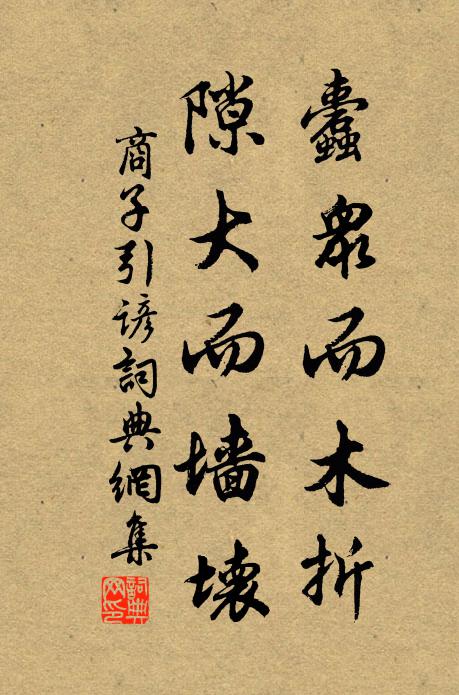 蠹眾而木折
隙大而墙壞
商子引諺詞典網集
詞典网印